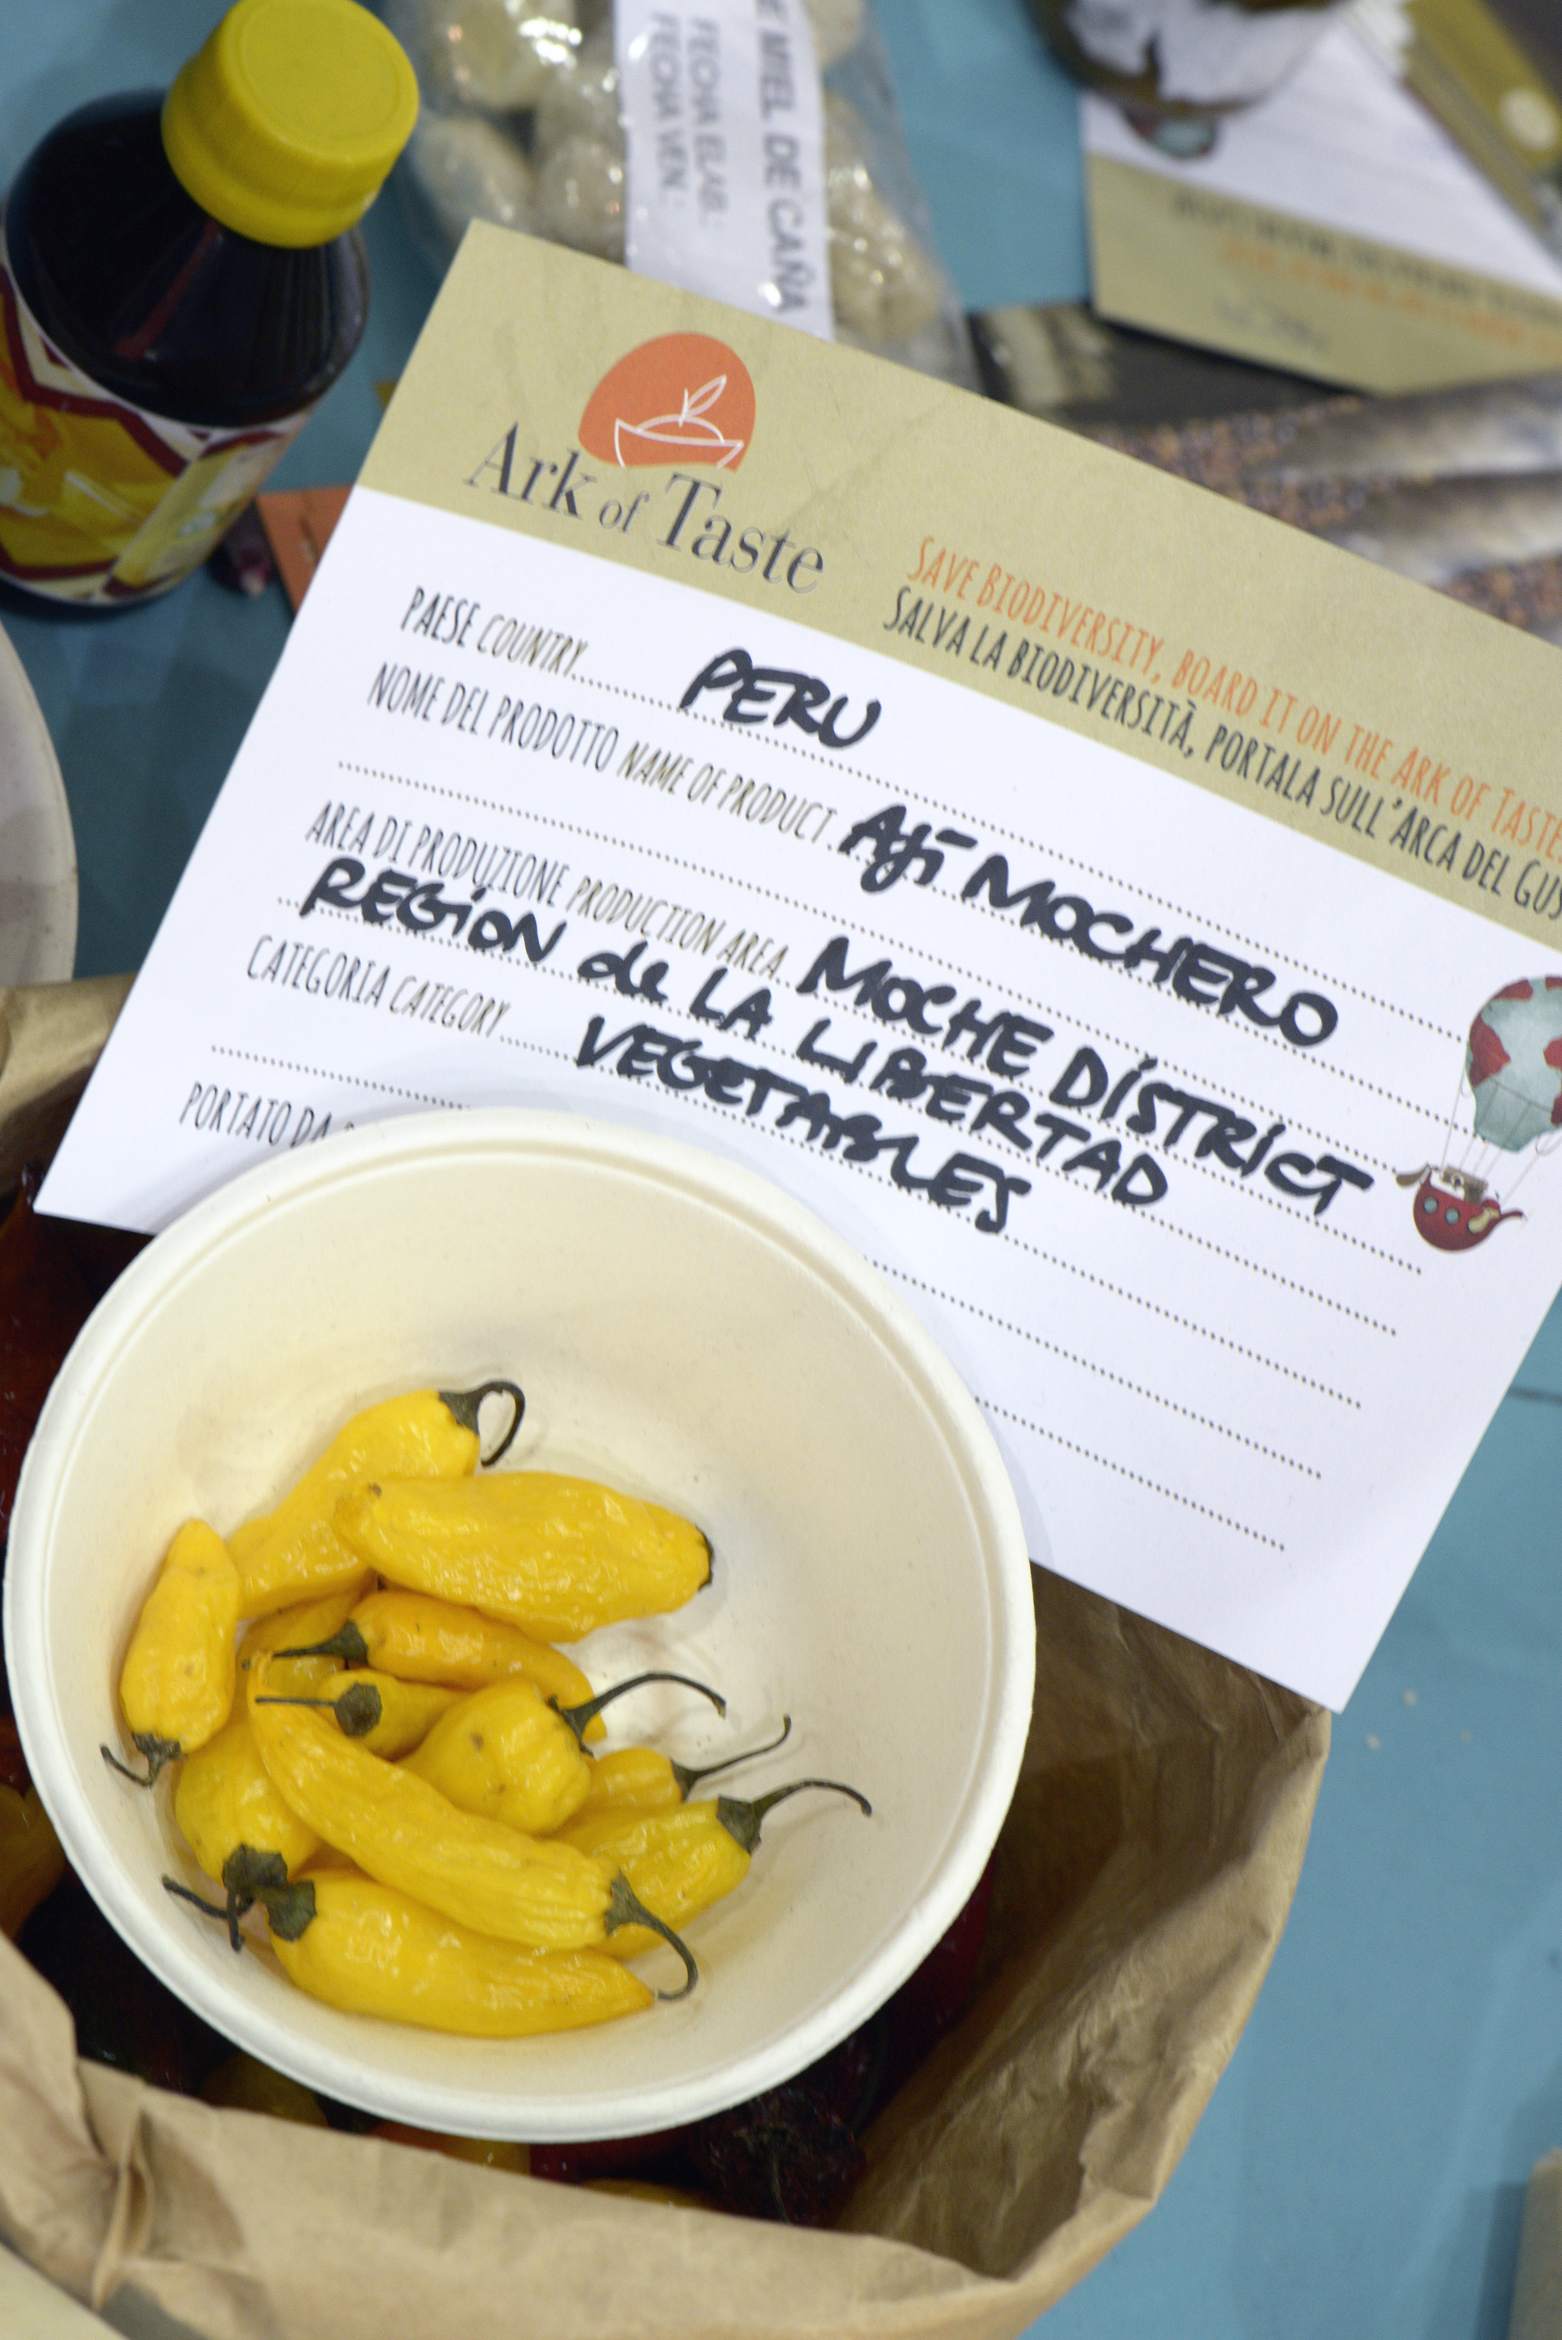 E MIEL DE CAÑA
FECHA ELAB.:
FECHA VEN.:
Ark of Taste
SAVE BIODIVERSITY, BOARD IT ON THE ARK OF TASTE
SALVA LA BIODIVERSITÀ, PORTALA SULL'ARCA DEL GUS
PAESE COUNTRY PERU
NOME DEL PRODOTTO NAME OF PRODUCT AJÍ MOCHERO
AREA DI PRODUZIONE PRODUCTION AREA MOCHE DISTRICT
REGIÓN de LA LIBERTAD
CATEGORIA CATEGORY VEGETABLES
PORTATO DA